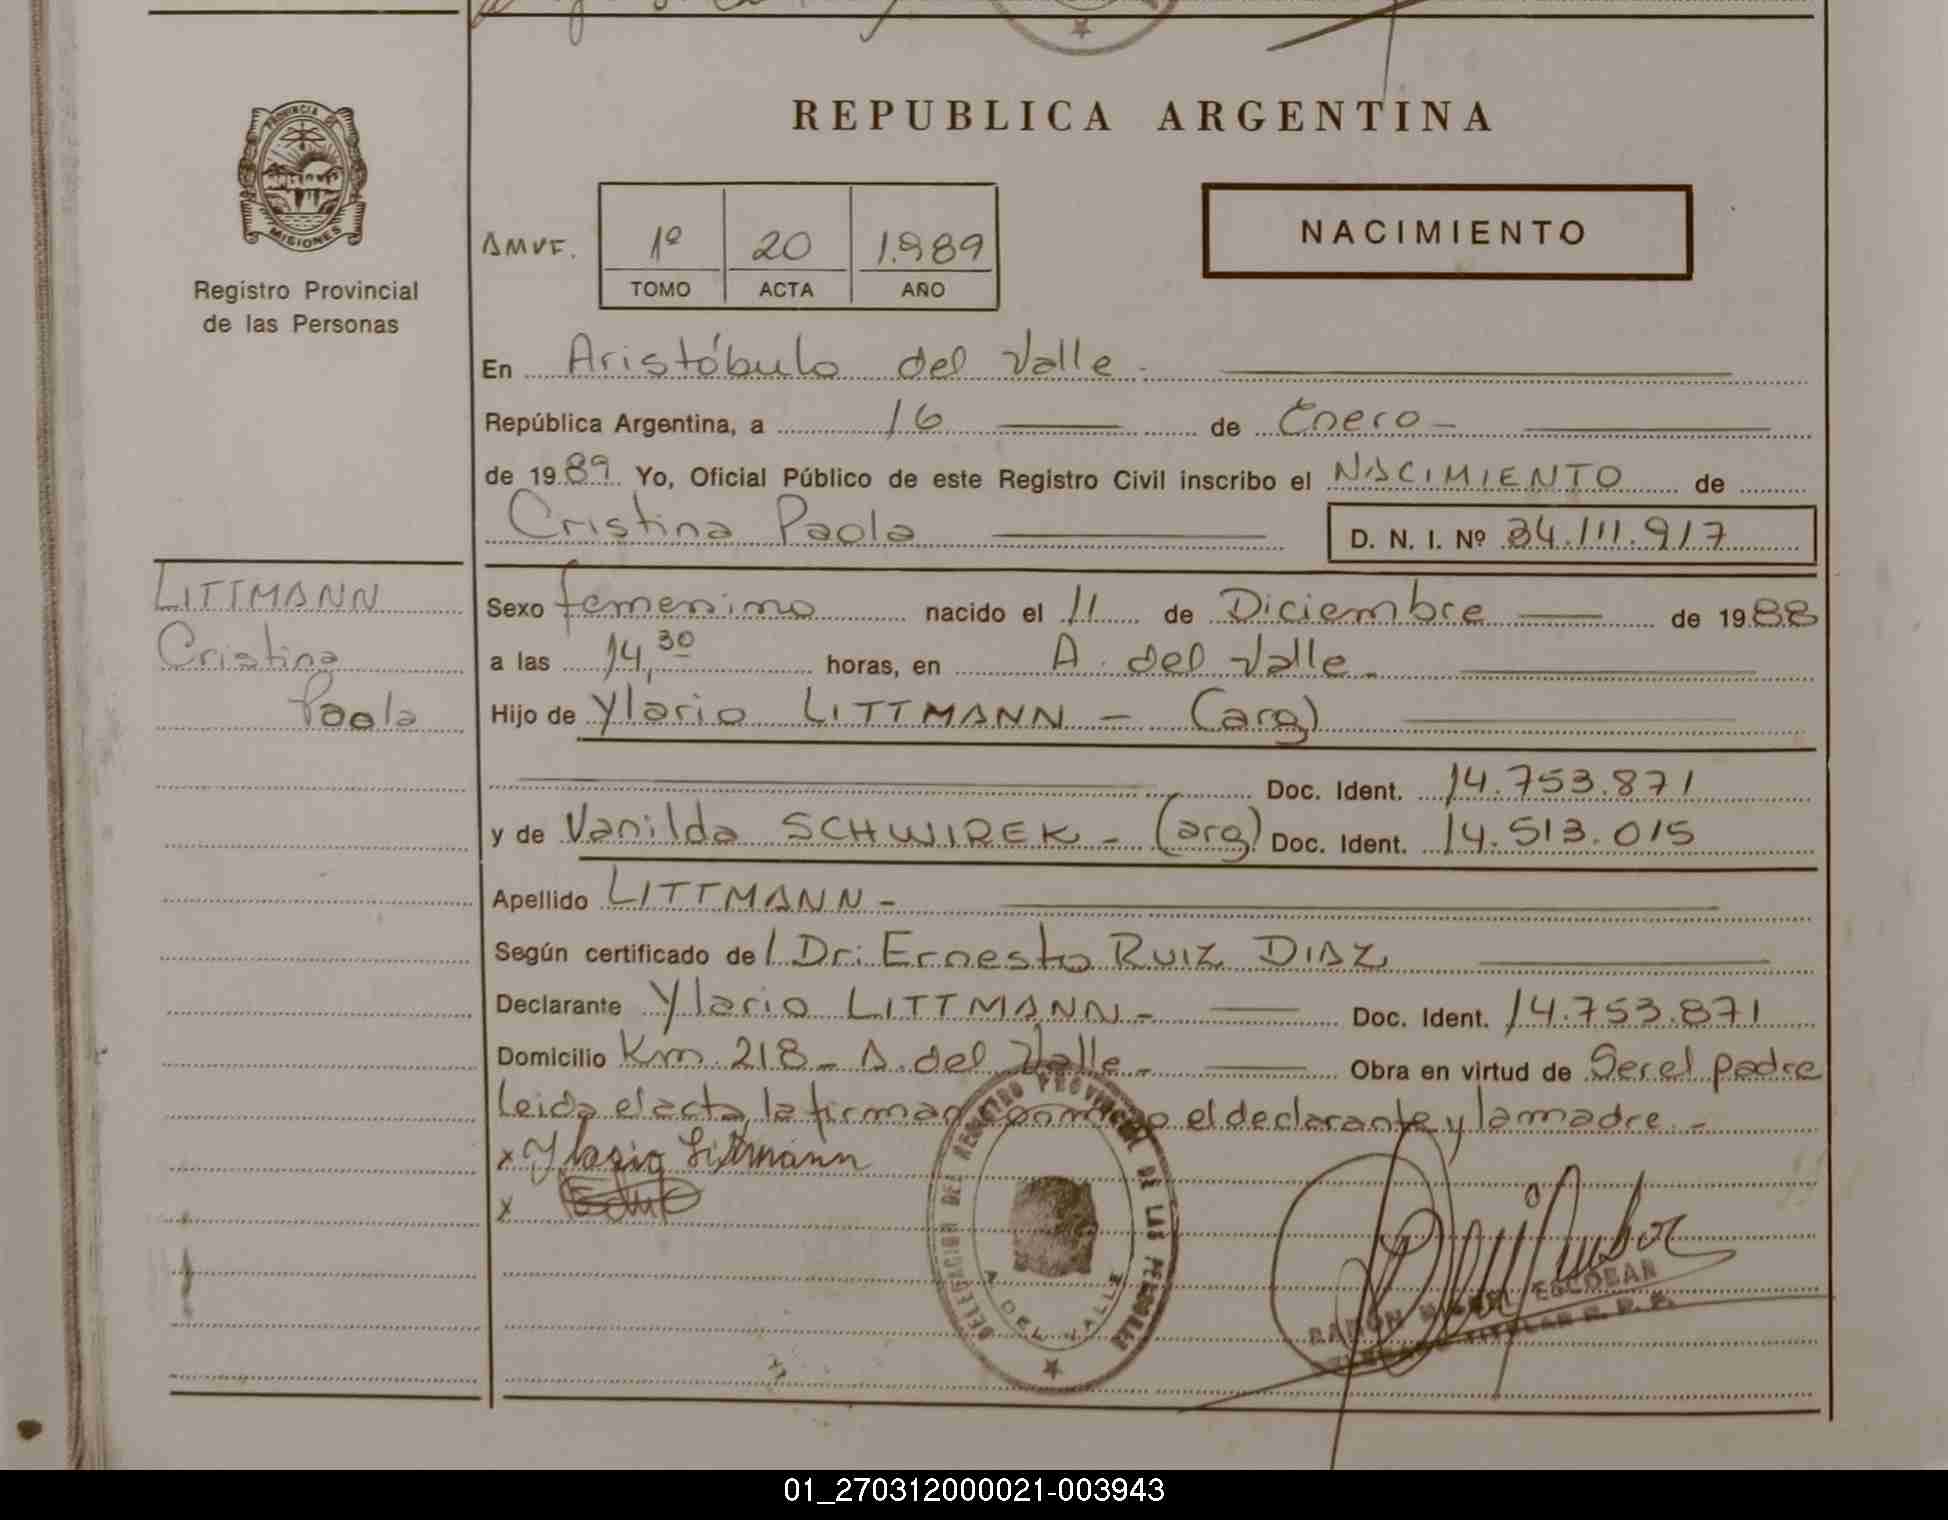 REPUBLICA ARGENTINA
PROVINCIA DE
MISIONES
Registro Provincial
de las Personas
AMVF. 1º 20 1.989
TOMO ACTA AÑO
NACIMIENTO
En Aristóbulo del Valle -
República Argentina, a 16 de Enero -
de 1989 Yo, Oficial Público de este Registro Civil inscribo el NACIMIENTO de
Cristina Paola D. N. I. Nº 34.111.917
LITTMANN
Cristina
Paola
Sexo femenino nacido el 11 de Diciembre de 1988
a las 14,30 horas, en A. del Valle -
Hijo de Ylario LITTMANN - (arg)
Doc. Ident. 14.753.871
y de Vanilda SCHWIREK - (arg) Doc. Ident. 14.513.015
Apellido LITTMANN -
Según certificado de l Dr: Ernesto RUIZ DIAZ
Declarante Ylario LITTMANN - Doc. Ident. 14.753.871
Domicilio Km. 218 - A. del Valle - Obra en virtud de Ser el padre
Leida el acta, la firman conmigo el declarante y la madre -
x Ylario Littmann
x
DELEGACION DEL REGISTRO PROVINCIAL DE LAS PERSONAS
A. DEL VALLE
RAMON MIGUEL ESCOBAR
TITULAR R. P. P.
01_270312000021-003943